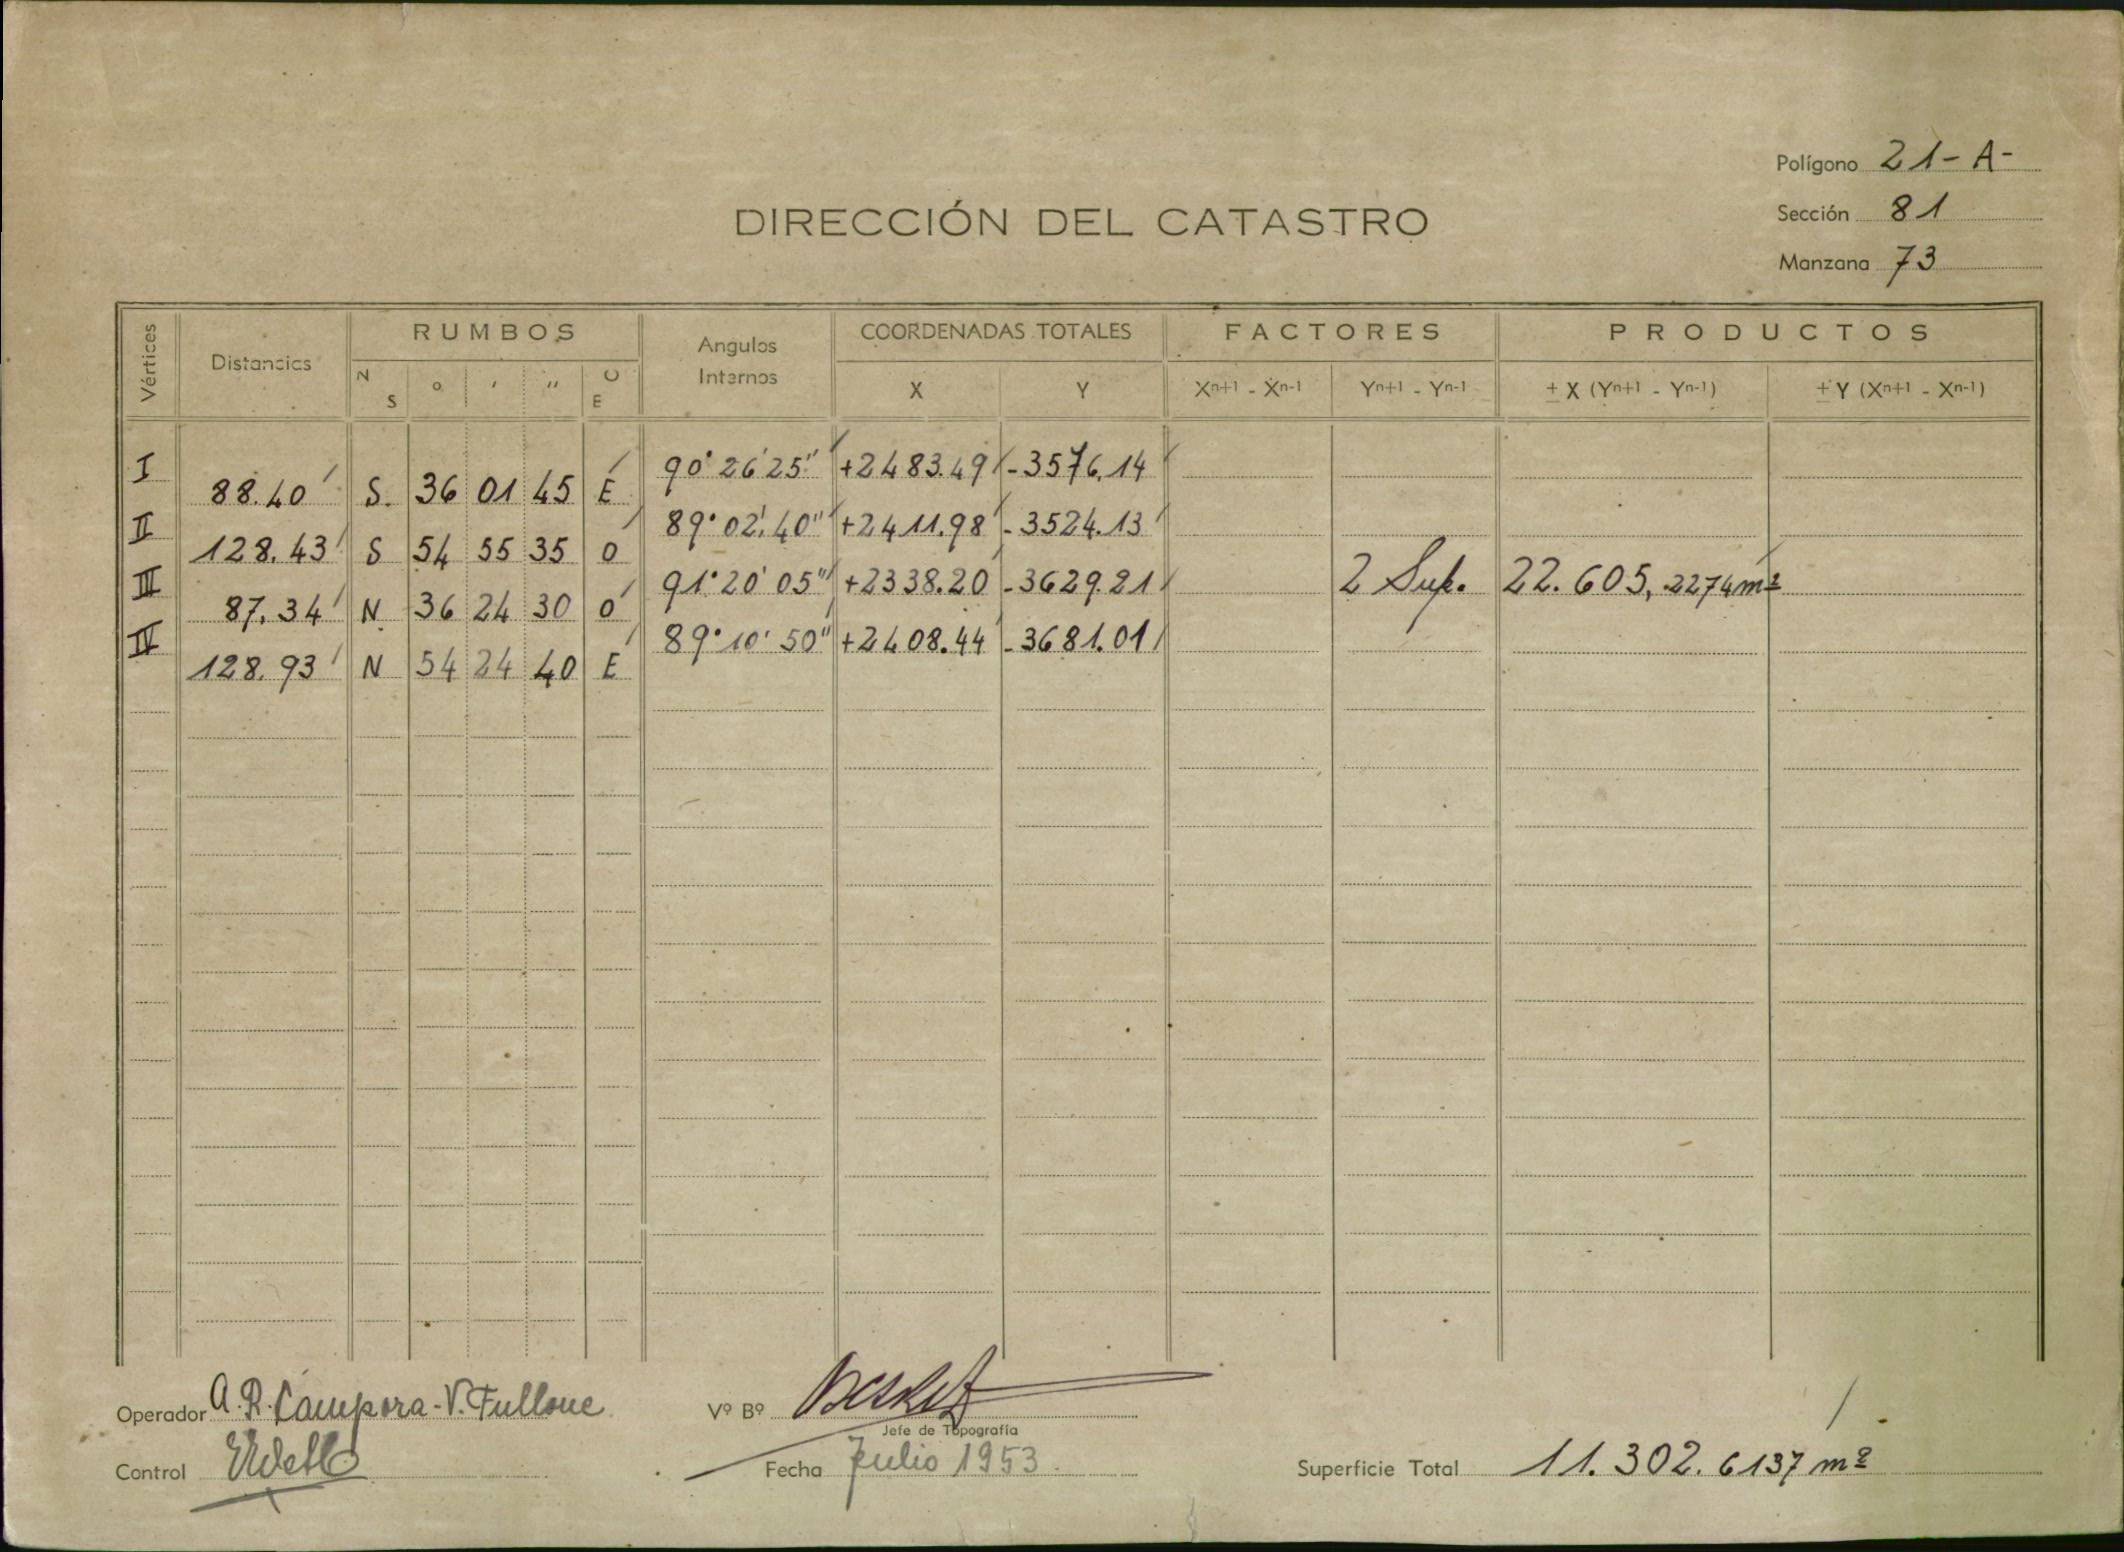 Polígono 21-A-
DIRECCIÓN DEL CATASTRO
Sección 81
Manzana 73
Vértices Distancias RUMBOS Angulos Internos COORDENADAS TOTALES FACTORES PRODUCTOS
N S ° ' " O E X Y Xn+1 - Xn-1 Yn+1 - Yn-1 ± X (Yn+1 - Yn-1) ± Y (Xn+1 - Xn-1)
I 90° 26' 25" +2483.49 -3576.14
88.40 S. 36 01 45 E
II 89° 02' 40" +2411.98 -3524.13
128.43 S 54 55 35 O
III 91° 20' 05" +2338.20 -3629.21 2 Sup. 22.605,2274 m²
87.34 N 36 24 30 O
IV 89° 10' 50" +2408.44 -3681.01
128.93 N 54 24 40 E
Operador A. R. Cámpora - V. Fullone Vº Bº
Jefe de Topografía
Control Fecha Julio 1953 Superficie Total 11.302.6137 m²